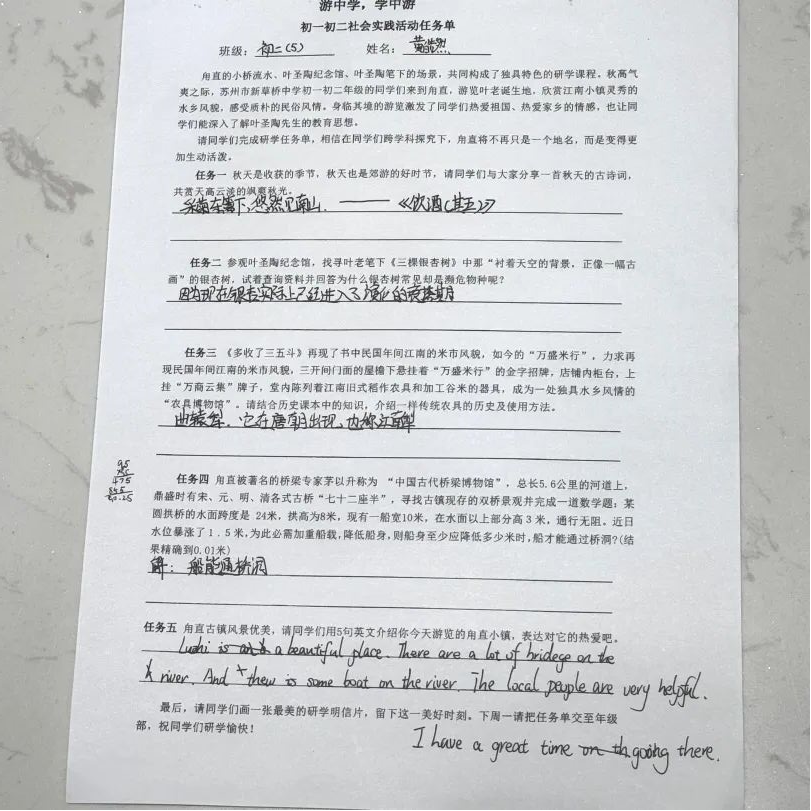 游中学，学中游
初一初二社会实践活动任务单
班级：初二(5) 姓名：黄皓然
甪直的小桥流水、叶圣陶纪念馆、叶圣陶笔下的场景，共同构成了独具特色的研学课程。秋高气
爽之际，苏州市新草桥中学初一初二年级的同学们来到甪直，游览叶老诞生地，欣赏江南小镇灵秀的
水乡风貌，感受质朴的民俗风情。身临其境的游览激发了同学们热爱祖国、热爱家乡的情感，也让同
学们能深入了解叶圣陶先生的教育思想。
请同学们完成研学任务单，相信在同学们跨学科探究下，甪直将不再只是一个地名，而是变得更
加生动活泼。
任务一 秋天是收获的季节，秋天也是郊游的好时节，请同学们与大家分享一首秋天的古诗词，
共赏天高云淡的飒爽秋光。
采菊东篱下，悠然见南山. —— 《饮酒(其五)》
任务二 参观叶圣陶纪念馆，找寻叶老笔下《三棵银杏树》中那“衬着天空的背景，正像一幅古
画”的银杏树，试着查询资料并回答为什么银杏树常见却是濒危物种呢？
因为现在银杏实际上已经进入了演化的衰落期
任务三 《多收了三五斗》再现了书中民国年间江南的米市风貌，如今的“万盛米行”，力求再
现民国年间江南的米市风貌，三开间门面的屋檐下悬挂着“万盛米行”的金字招牌，店铺内柜台，上
挂“万商云集”牌子，堂内陈列着江南旧式稻作农具和加工谷米的器具，成为一处独具水乡风情的
“农具博物馆”。请结合历史课本中的知识，介绍一样传统农具的历史及使用方法。
曲辕犁，它在唐朝出现，也称江南犁
任务四 甪直被著名的桥梁专家茅以升称为 “中国古代桥梁博物馆”，总长5.6公里的河道上，
鼎盛时有宋、元、明、清各式古桥“七十二座半”，寻找古镇现存的双桥景观并完成一道数学题：某
圆拱桥的水面跨度是 24米，拱高为8米，现有一船宽10米，在水面以上部分高 3 米，通行无阻。近日
水位暴涨了 1．5 米，为此必需加重船载，降低船身，则船身至少应降低多少米时，船才能通过桥洞？(结
果精确到0.01米)
解：船能通桥洞
任务五 甪直古镇风景优美，请同学们用5句英文介绍你今天游览的甪直小镇，表达对它的热爱吧。
Luzhi is a beautiful place. There are a lot of bridege on the
river. And thew is some boat on the river. The local people are very helpful.
最后，请同学们画一张最美的研学明信片，留下这一美好时刻。下周一请把任务单交至年级
部，祝同学们研学愉快！
I have a great time going there.